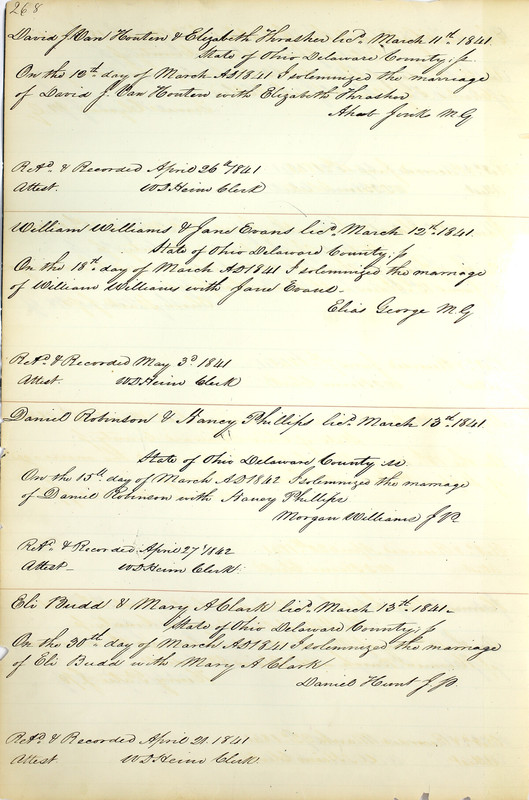 268
David J. Van Houten & Elizabeth Thrasher licd. March 11th 1841.
State of Ohio Delaware County; ss.
On the 12th day of March AD 1841 I solemnized the marriage
of David J. Van Houten with Elizabeth Thrasher
Ahab Jinks M.G
Retd. & Recorded April 26th 1841
Attest. W D Heim Clerk
William Williams & Jane Evans licd. March 12th 1841.
State of Ohio Delaware County; ss
On the 18th day of March AD 1841 I solemnized the marriage
of William Williams with Jane Evans -
Elias George M.G
Retd. & Recorded May 3d. 1841
Attest. W D Heim Clerk
Daniel Robinson & Nancy Phillips licd. March 13th 1841.
State of Ohio Delaware County ss.
On the 15th day of March AD 1842 I solemnized the marriage
of Daniel Robinson with Nancy Phillips
Morgan Williams J P.
Retd. & Recorded April 27th 1842
Attest - W D Heim Clerk.
Eli Budd & Mary A Clark licd. March 13th 1841 -
State of Ohio Delaware County; ss
On the 30th day of March AD 1841 I solemnized the marriage
of Eli Budd with Mary A Clark
Daniel Hunt J P.
Retd. & Recorded April 21. 1841
Attest. W D Heim Clerk.